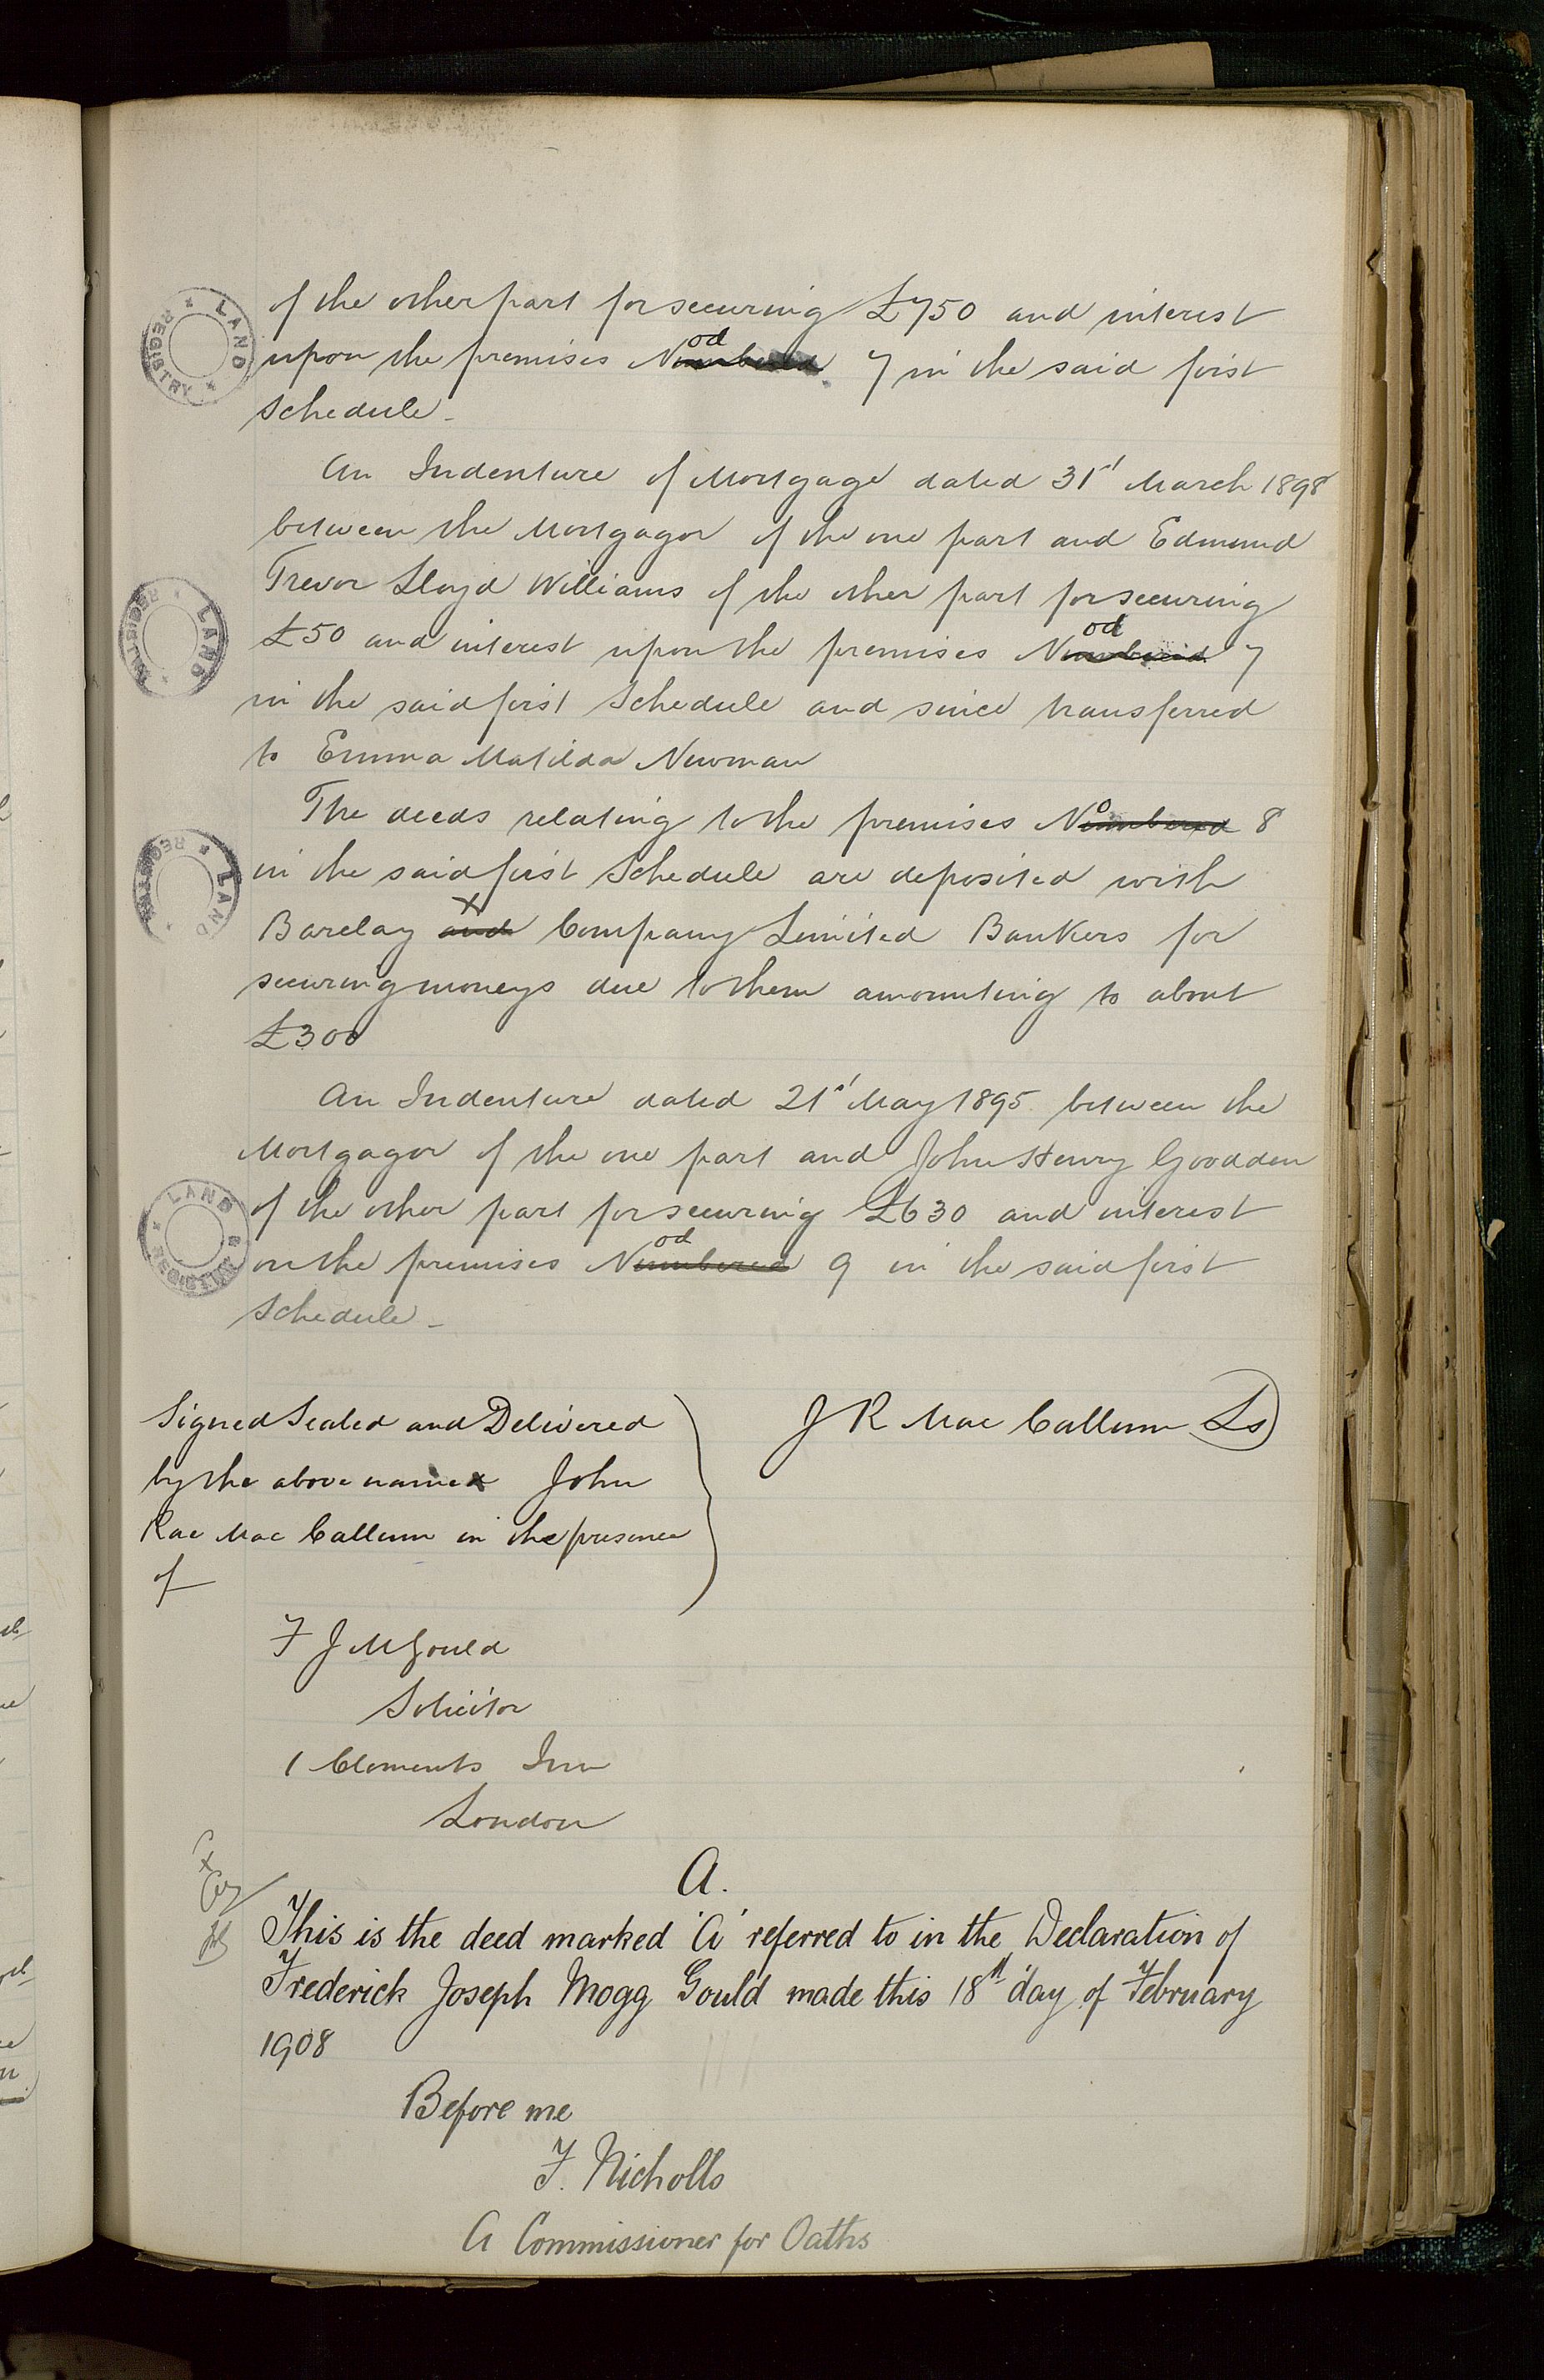 of the other part for securing £750 and interest
upon the premises Nod 7 in the said first
Schedule.
An Indenture of Mortgage dated 31st March 1898
between the Mortgagor of the one part and Edmund
Trevor Lloyd Williams of the other part for securing
£50 and interest upon the premises Nod 7
in the said first Schedule and since transferred
to Emma Matilda Newman
The deeds relating to the premises No 8
in the said first Schedule are deposited with
Barclay & Company Limited Bankers for
securing moneys due to them amounting to about
£300
An Indenture dated 21st May 1895 between the
Mortgagor of the one part and John Henry Goodden
of the other part for securing £630 and interest
on the premises Nod 9 in the said first
Schedule.
Signed Sealed and Delivered
by the above named John
Rae Mac Callum in the presence
of
J R Mac Callum LS
F J M Gould
Solicitor
1 Clements Inn
London
A.
This is the deed marked 'A' referred to in the Declaration of
Frederick Joseph Mogg Gould made this 18th day of February
1908
Before me
F. Nicholls
A Commissioner for Oaths
LAND REGISTRY
LAND REGISTRY
LAND REGISTRY
LAND REGISTRY